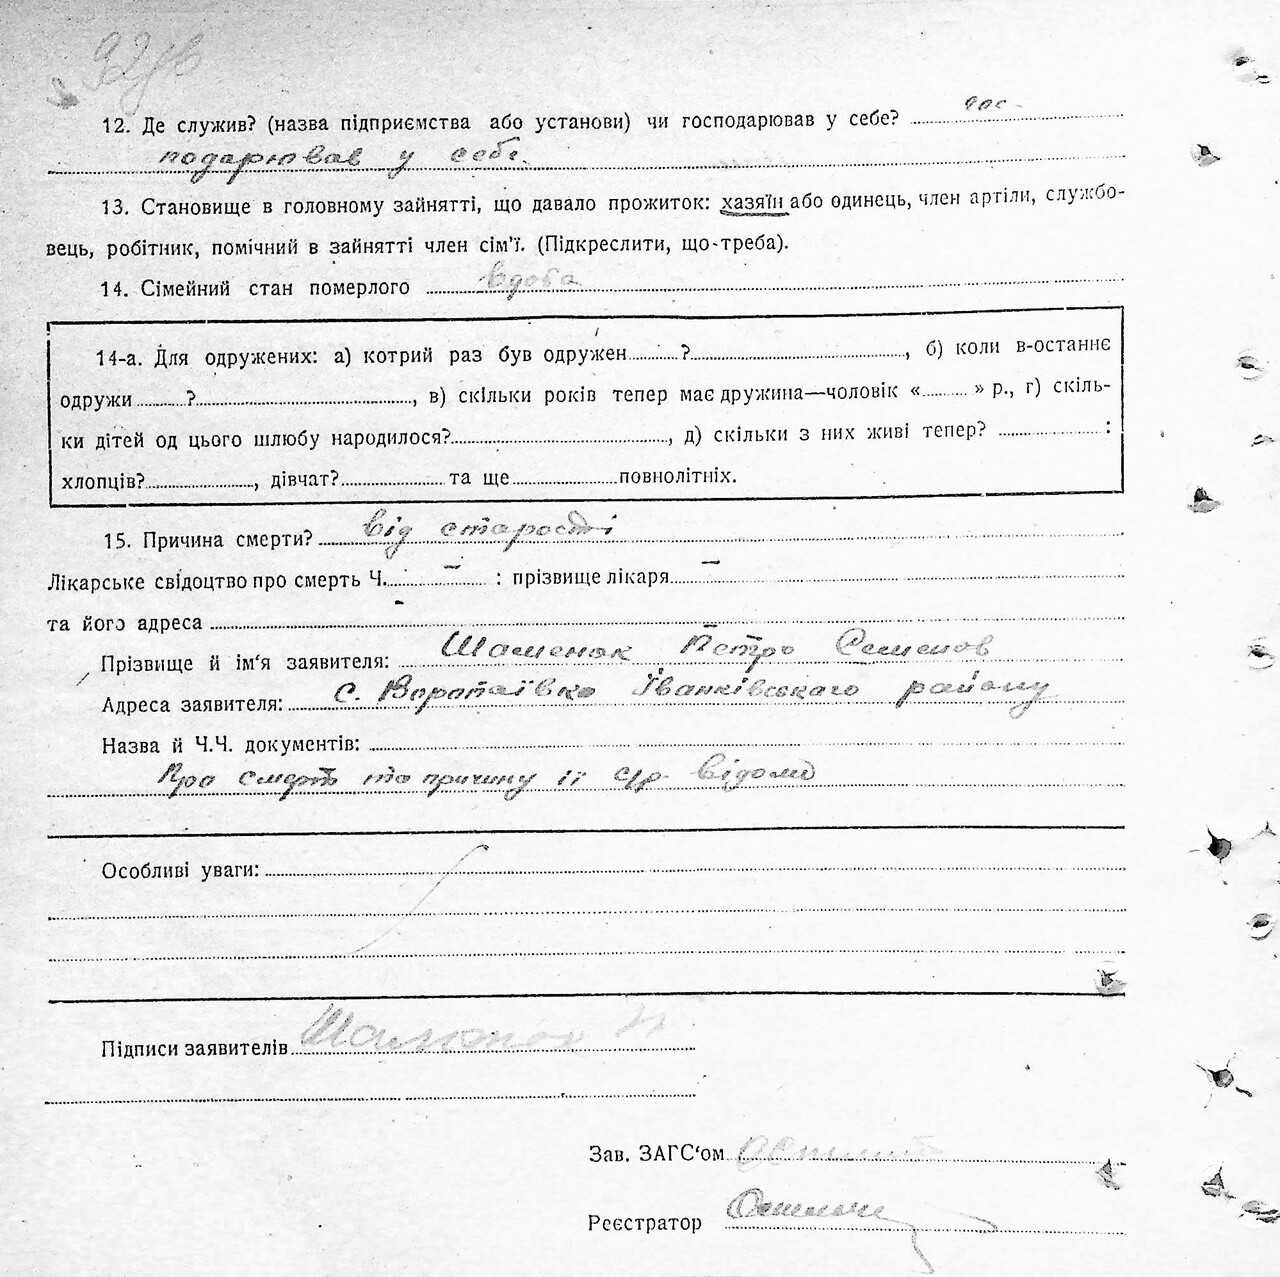 92зв
12. Де служив? (назва підприємства або установи) чи господарював у себе? гос-
подарював у себе.
13. Становище в головному зайнятті, що давало прожиток: хазяїн або одинець, член артіли, службо-
вець, робітник, помічний в зайнятті член сім'ї. (Підкреслити, що-треба).
14. Сімейний стан померлого вдова
14-а. Для одружених: а) котрий раз був одружен ?, б) коли в-останнє
одружи ?, в) скільки років тепер має дружина—чоловік « » р., г) скіль-
ки дітей од цього шлюбу народилося?, д) скільки з них живі тепер? :
хлопців?, дівчат? та ще повнолітніх.
15. Причина смерти? від старості
Лікарське свідоцтво про смерть Ч. — : прізвище лікаря —
та його адреса —
Прізвище й ім'я заявителя: Шаменок Петро Семенов
Адреса заявителя: с. Воропаївка Іванківського району
Назва й Ч.Ч. документів:
Про смерть та причину її с/р відомо
Особливі уваги:
Підписи заявителів Шаменок П
Зав. ЗАГС'ом
Реєстратор